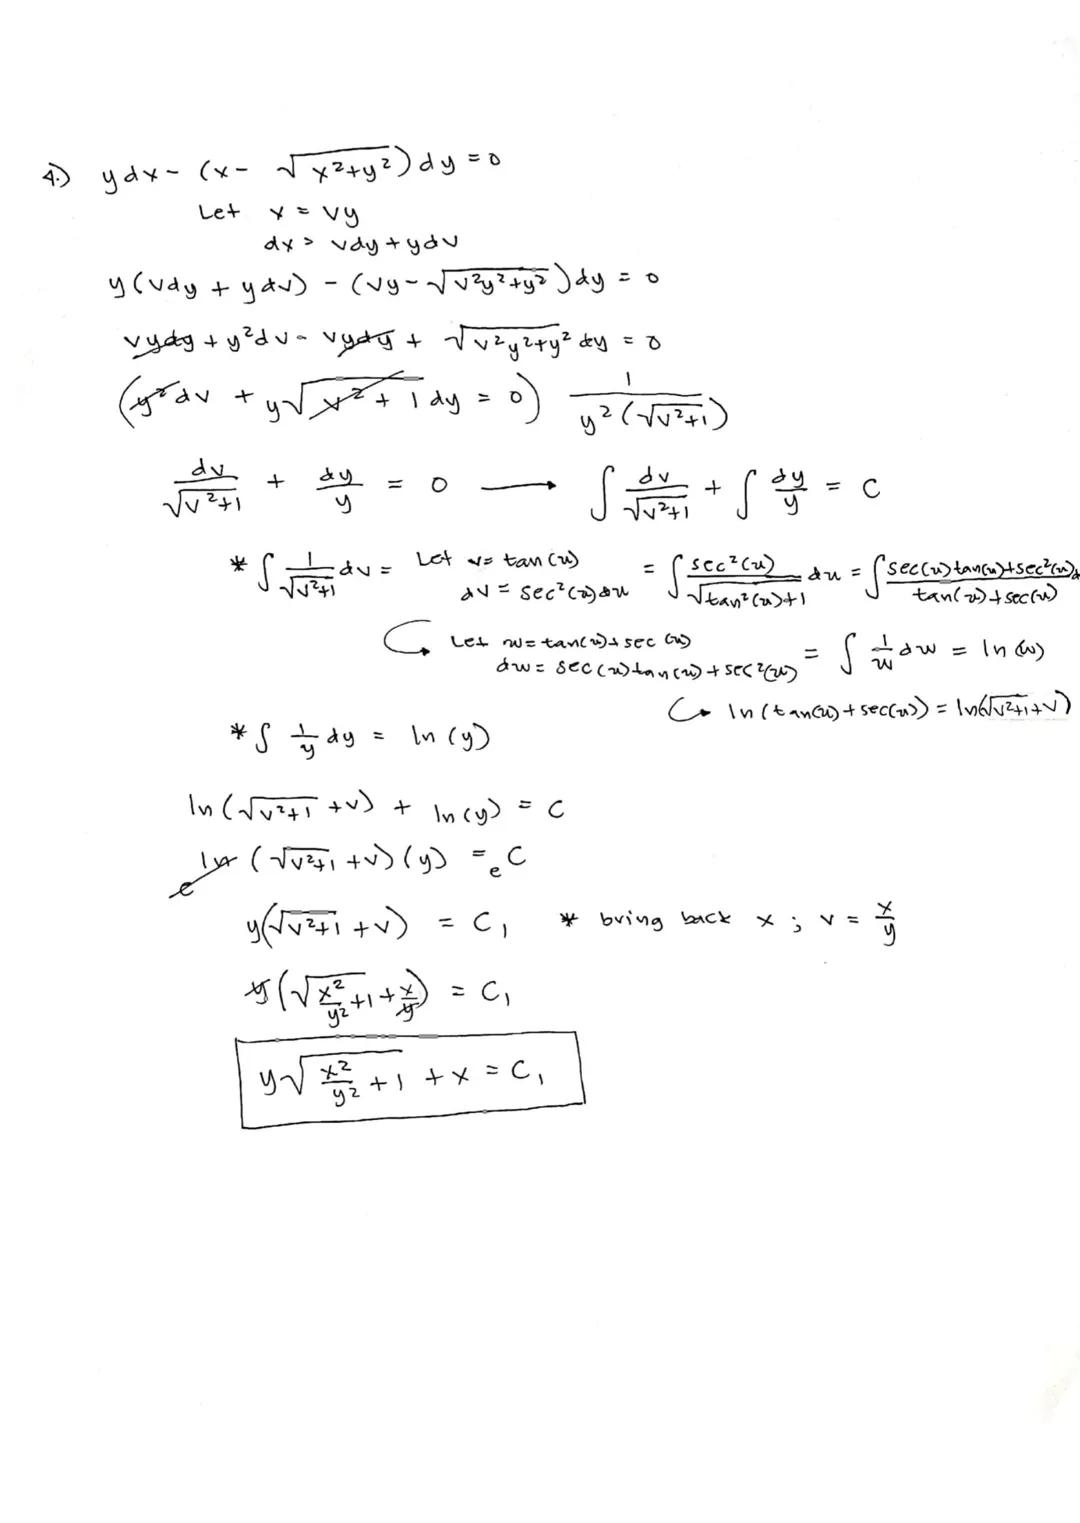 4.) ydx - (x - √(x²+y²)) dy = 0
Let x = vy
dx = vdy + ydv
y(vdy + ydv) - (vy - √(v²y²+y²)) dy = 0
vydy + y²dv - vydy + √(v²y²+y²) dy = 0
(y²dv + y√(v²+1) dy = 0) 1/(y²(√(v²+1)))
dv/√(v²+1) + dy/y = 0 → ∫ dv/√(v²+1) + ∫ dy/y = C
* ∫ 1/√(v²+1) dv = Let v = tan(u) = ∫ sec²(u)/√(tan²(u)+1) du = ∫ (sec(u)tan(u)+sec²(u))/(tan(u)+sec(u)) d
dv = sec²(u)du
Let w = tan(u)+sec(u) = ∫ 1/w dw = ln(w)
dw = sec(u)tan(u)+sec²(u)
ln(tan(u)+sec(u)) = ln(√(v²+1)+v)
* ∫ 1/y dy = ln(y)
ln(√(v²+1) + v) + ln(y) = C
e^ln (√(v²+1) + v)(y) = e^C
y(√(v²+1) + v) = C₁ * bring back x ; v = x/y
y(√(x²/y² + 1) + x/y) = C₁
y√(x²/y² + 1) + x = C₁